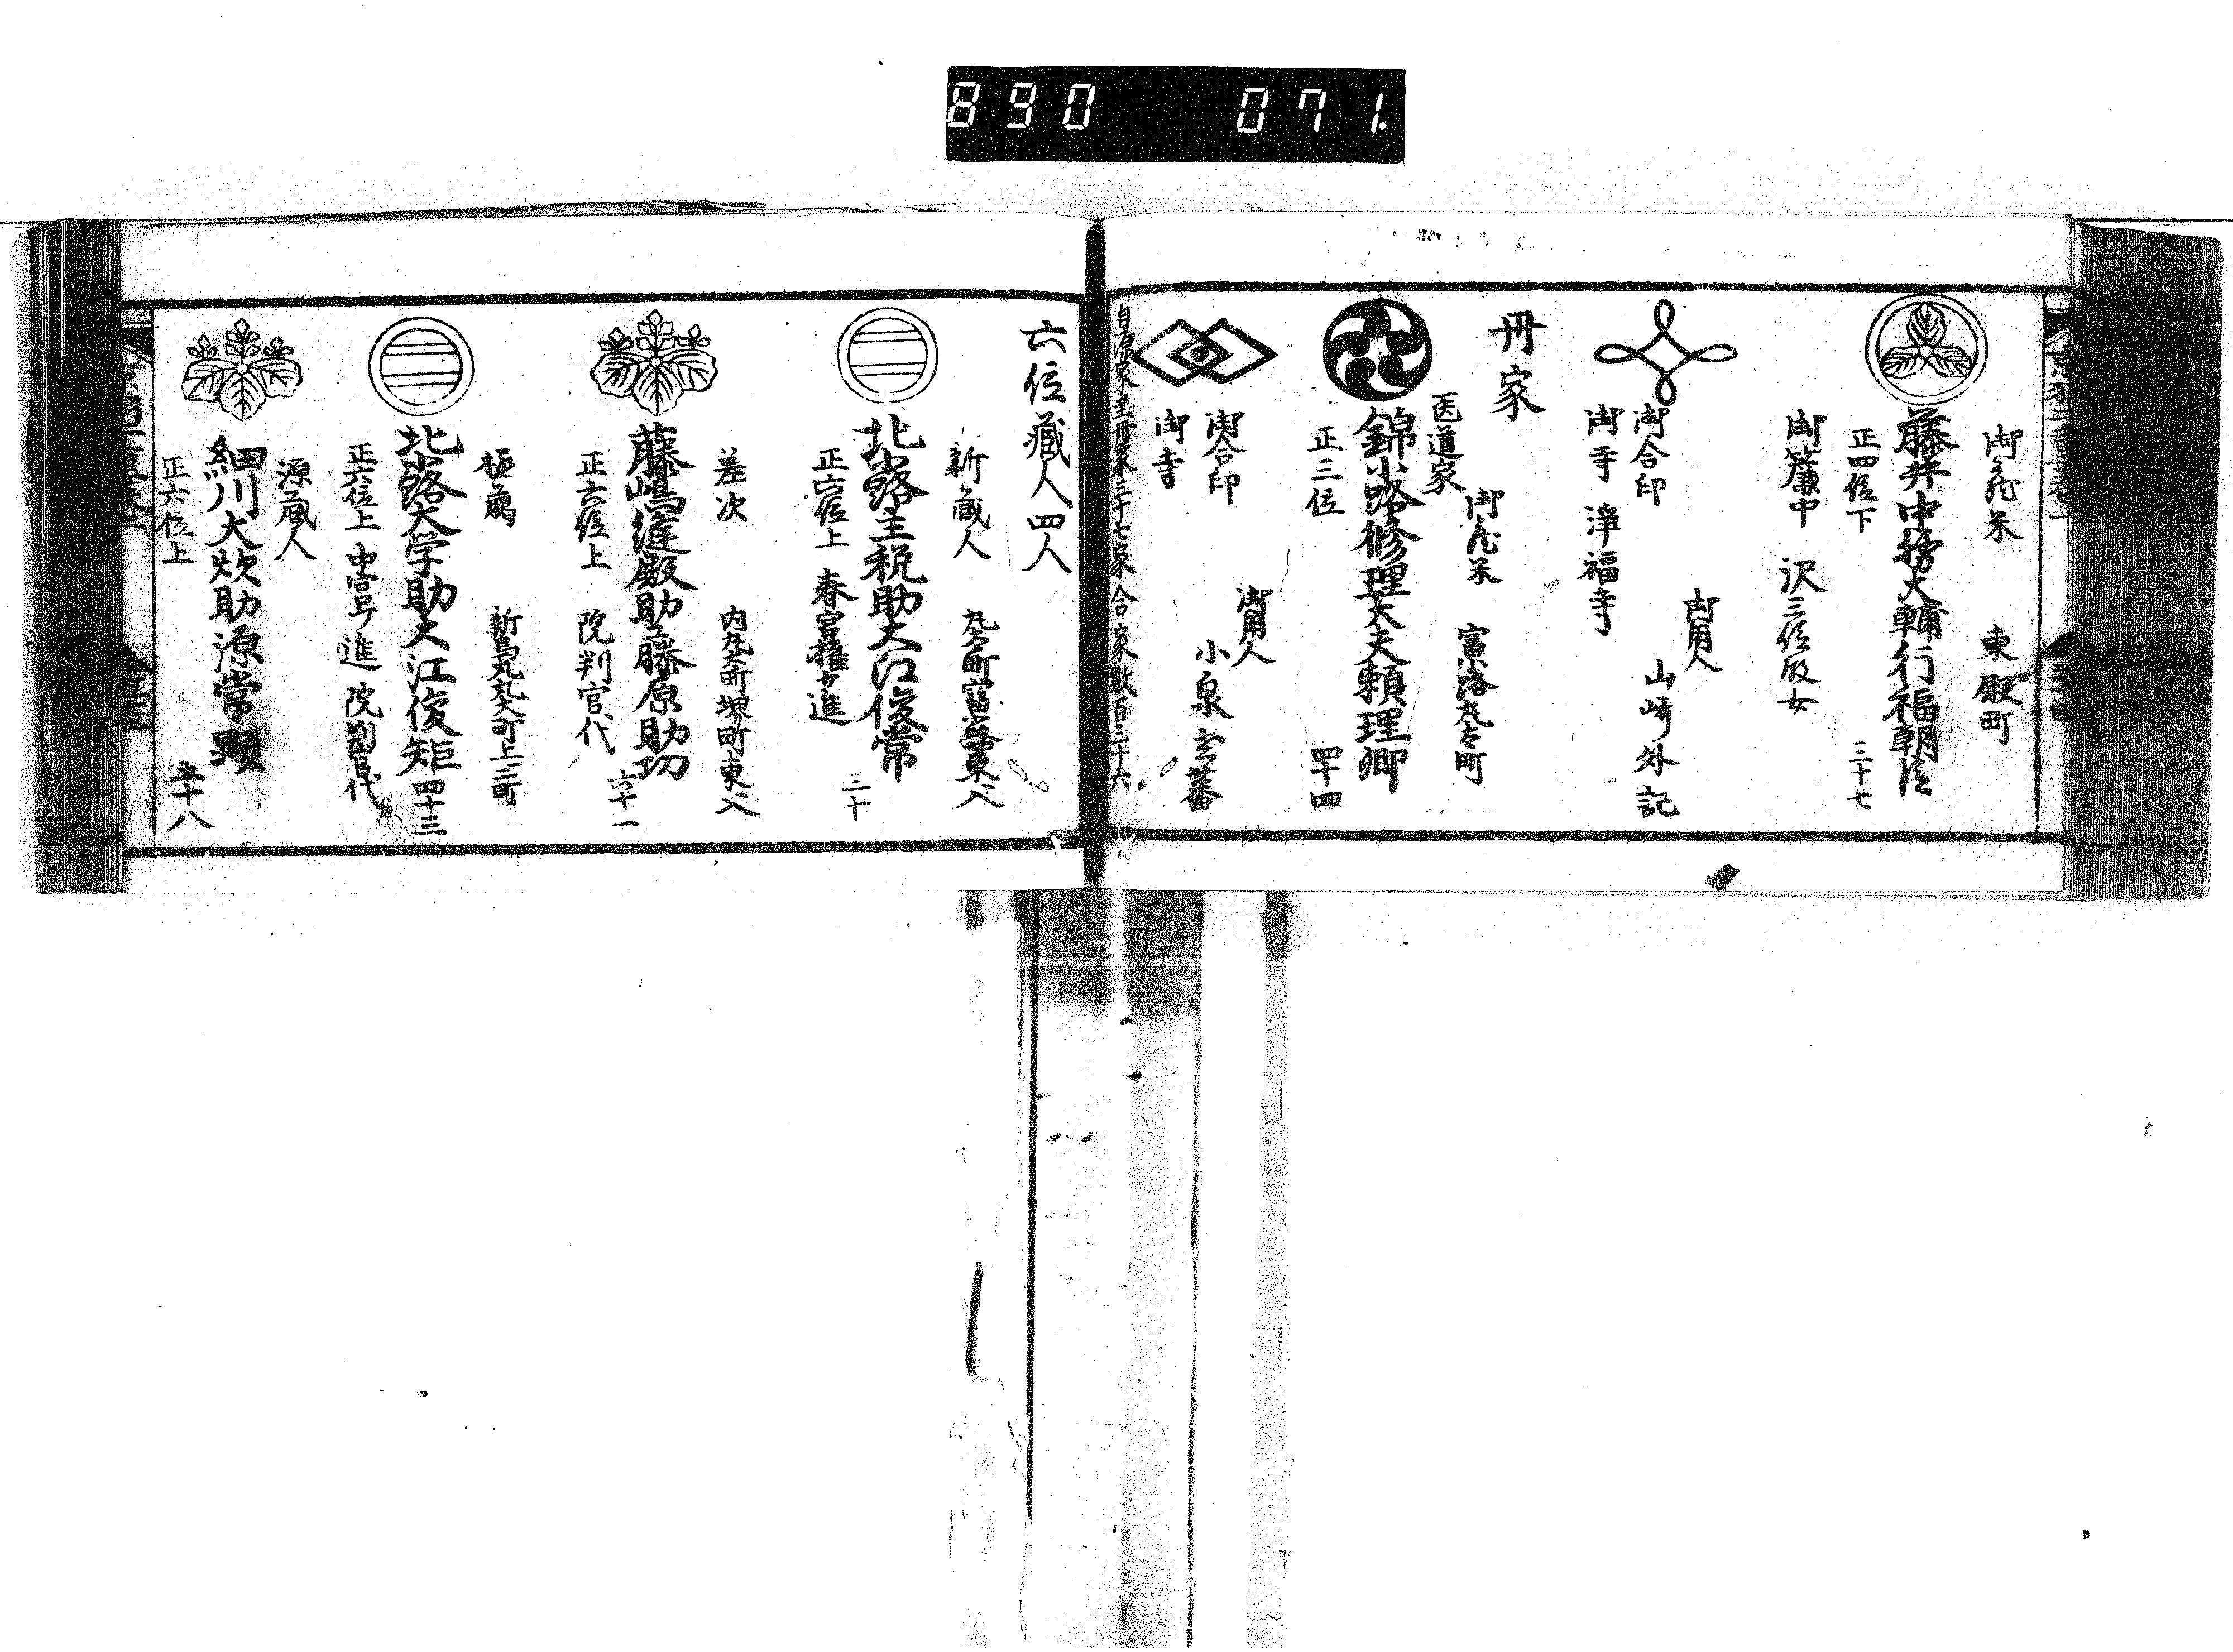 890 071.
御蔵米 東殿町
藤井中務大輔行福朝臣
正四位下 三十七
御簾中 沢三位殿女
御用人 山崎外記
御合印
御寺 浄福寺
丹家
御蔵米 富小路丸太町
医道家
錦小路修理大夫頼理卿
正三位 四十四
御用人 小泉玄蕃
御合印
御寺
自源家至丹家三十七家合家数百三十六
六位蔵人四人
新蔵人 丸太町富小路東へ入
北小路主税助大江俊常
正六位上 春宮権少進 二十
差次 内丸太町堺町東へ入
藤嶋縫殿助藤原助功
正六位上 院判官代 六十一
極﨟 新烏丸丸太町上二町
北小路大学助大江俊矩 四十三
正六位上 中宮少進 院判官代
源蔵人
細川大炊助源常顕
正六位上 五十八